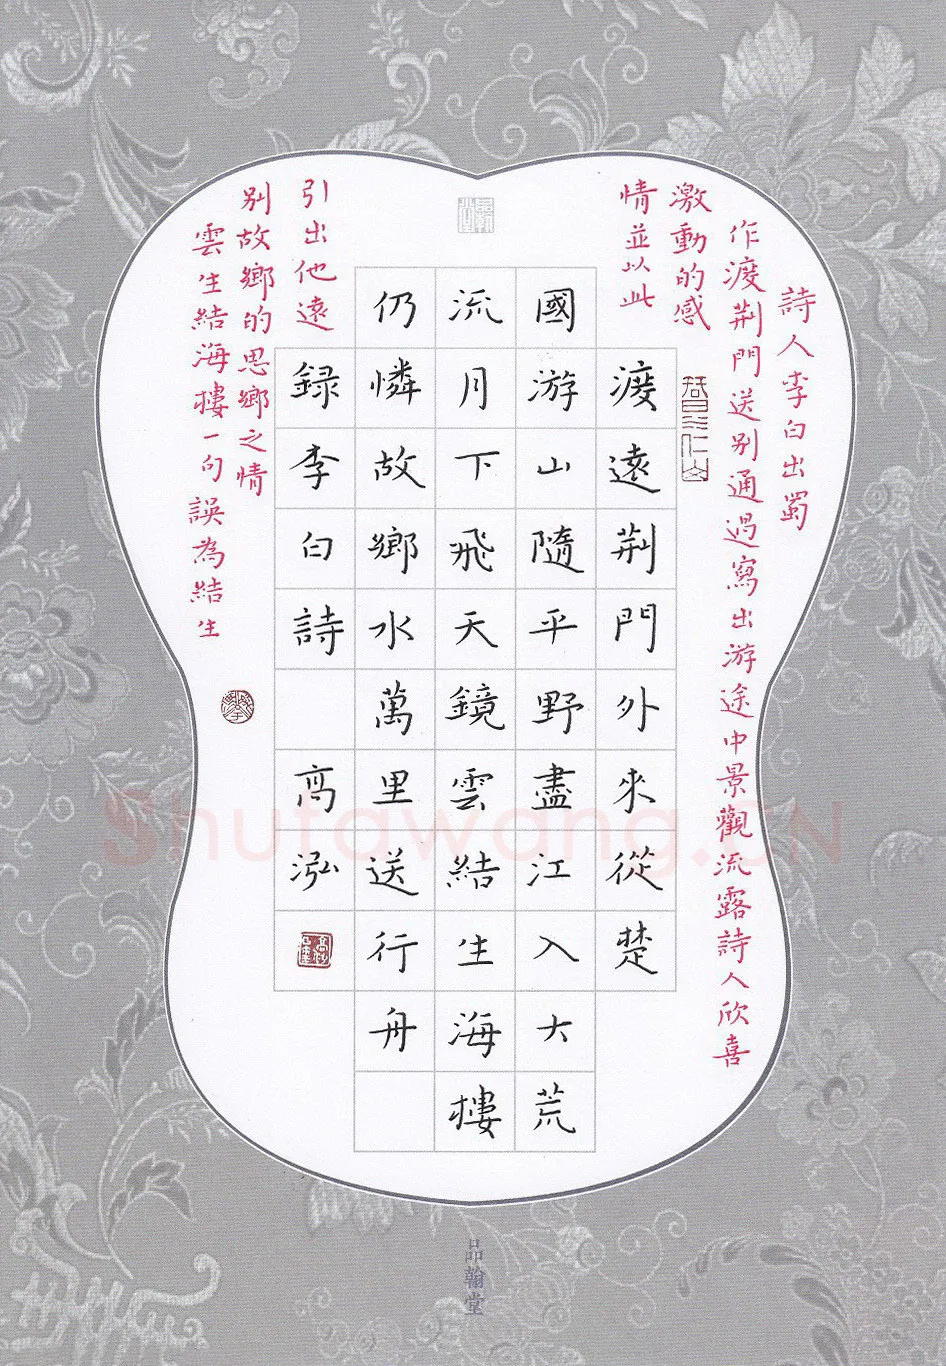 詩人李白出蜀
作渡荆門送别通過寫出游途中景觀流露詩人欣喜
激動的感
情並以此
渡遠荆門外來從楚
國游山隨平野盡江入大荒
流月下飛天鏡雲結生海樓
仍憐故鄉水萬里送行舟
録李白詩 高泓
引出他遠
别故鄉的思鄉之情
雲生結海樓一句誤為結生
品翰堂
Shufawang.CN